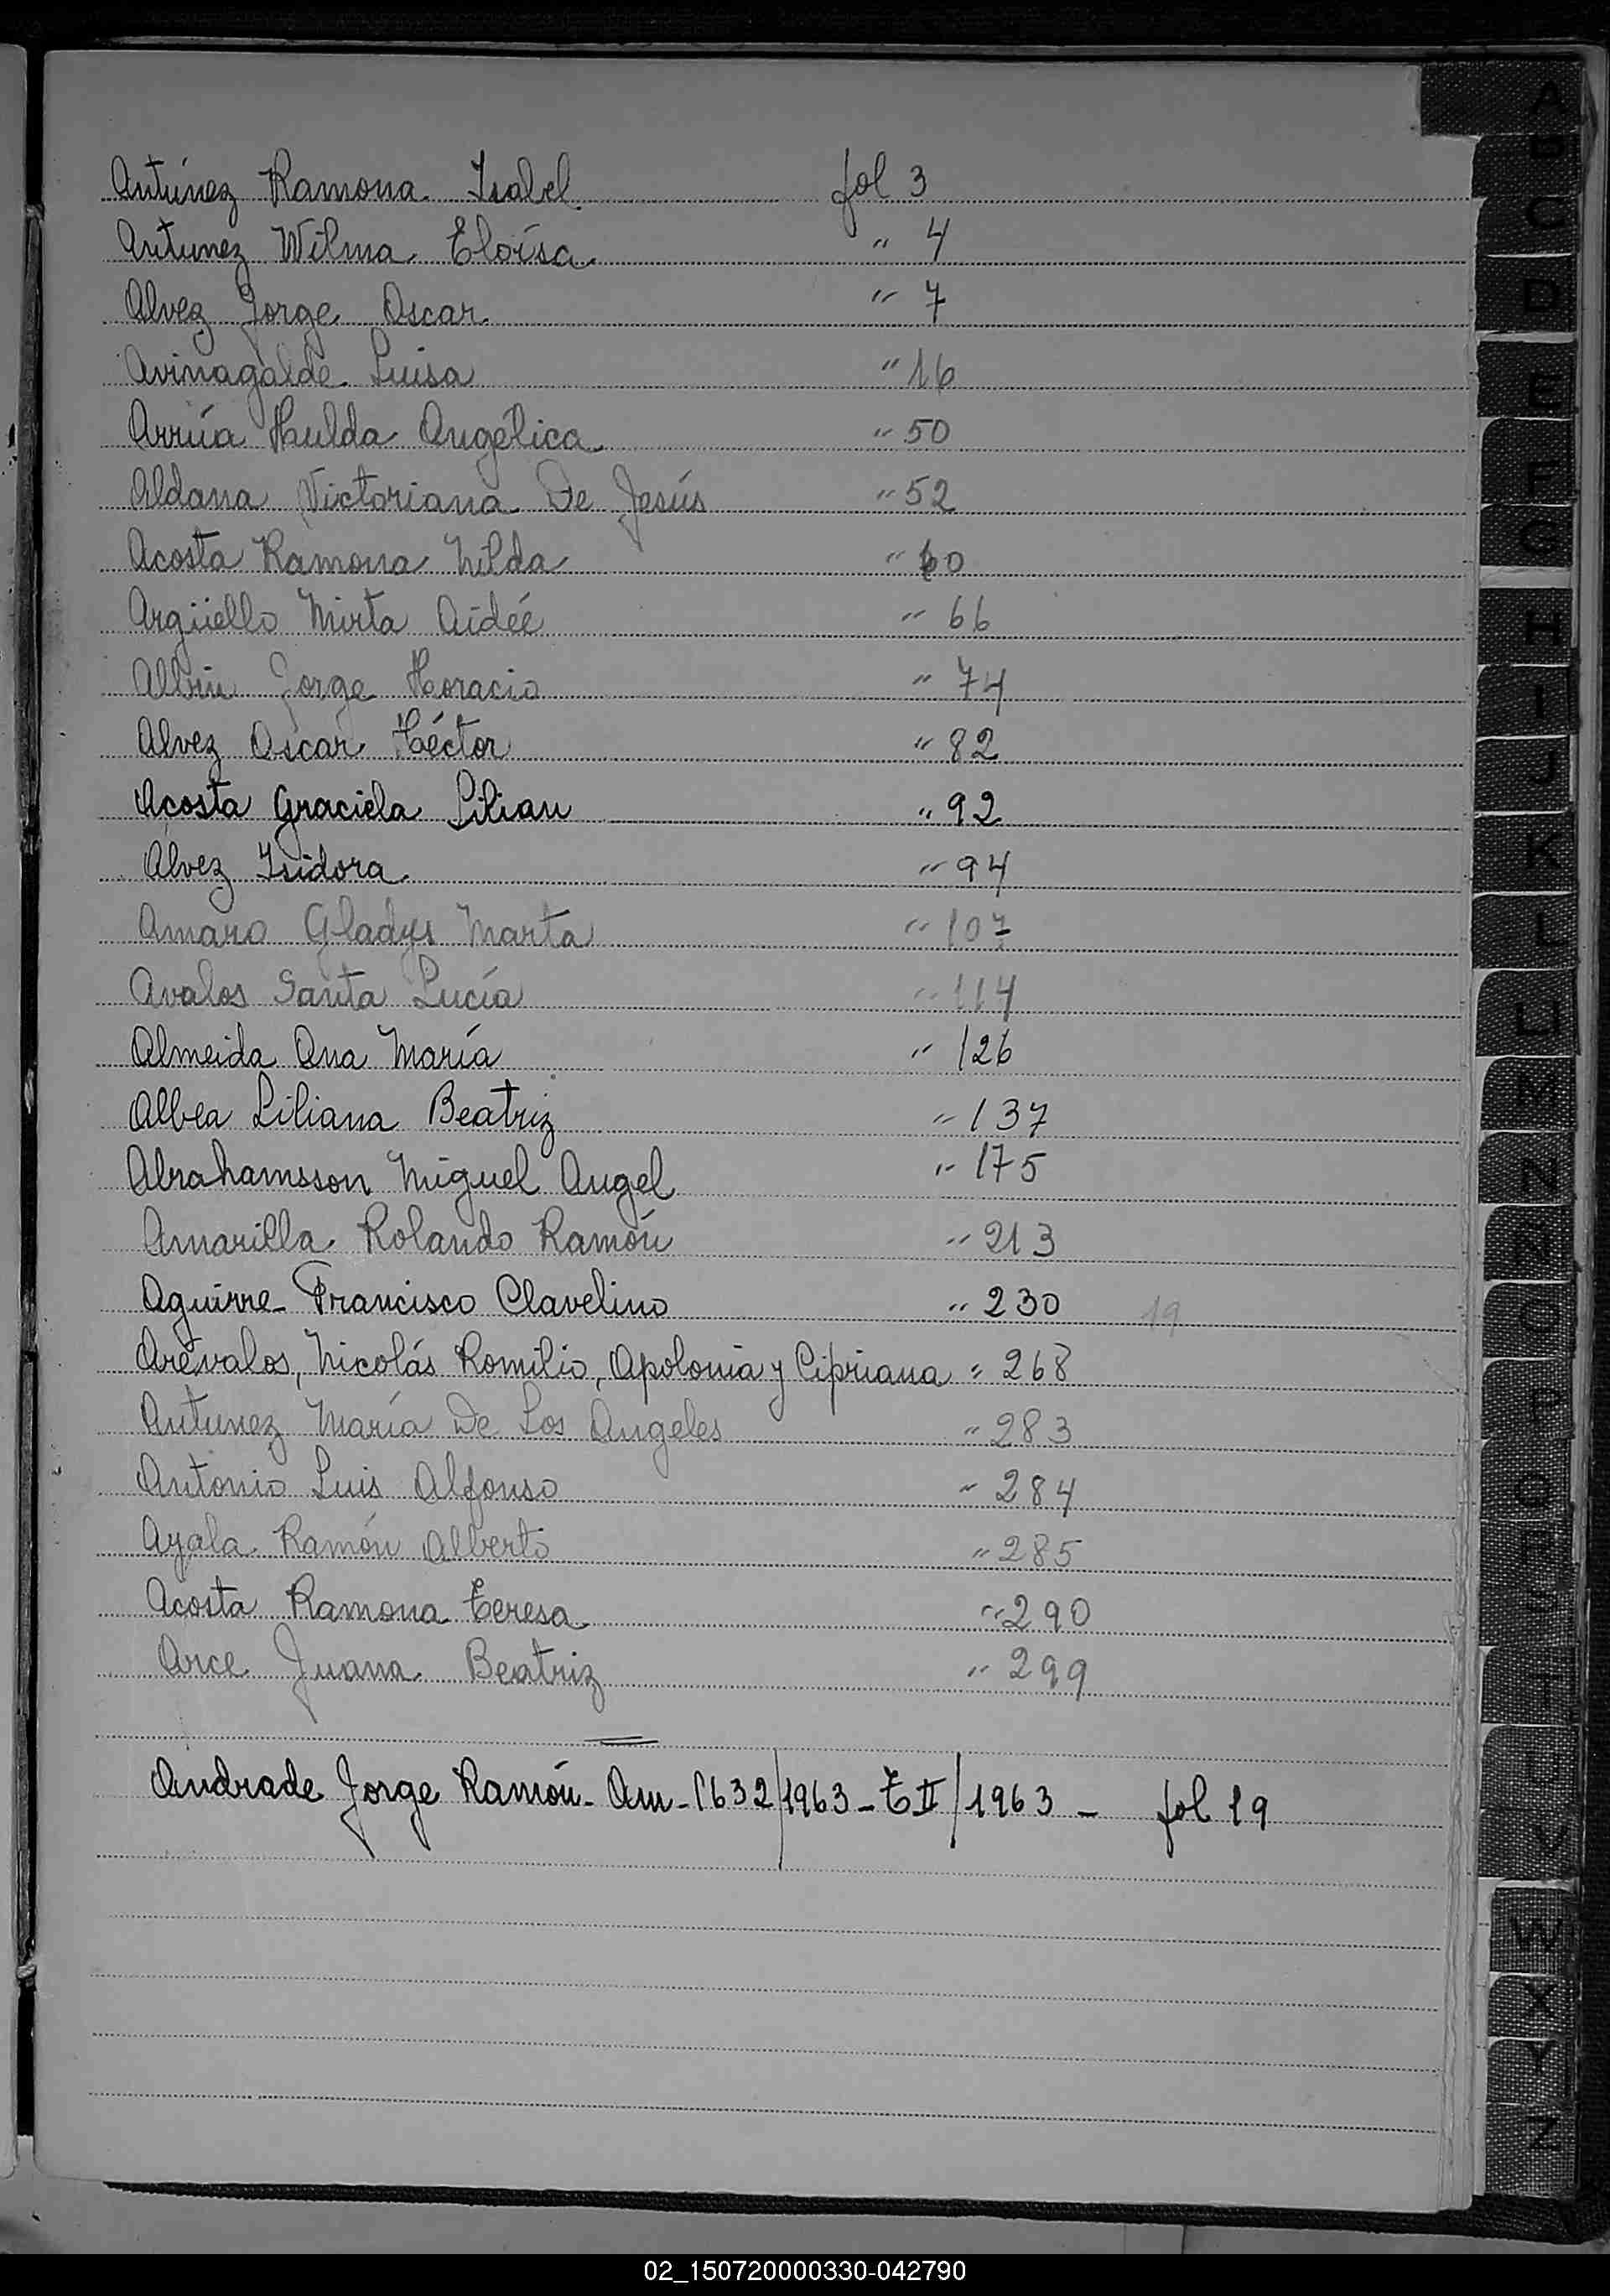 Antúnez Ramona Isabel fol 3
Antunez Wilma Eloísa " 4
Alvez Jorge Oscar " 7
Avinagalde Luisa " 16
Arrúa Hulda Angélica " 50
Aldana Victoriana De Jesús " 52
Acosta Ramona Nilda " 60
Argüello Mirta Aideé " 66
Jorge Horacio " 74
Alvez Oscar Héctor " 82
Acosta Graciela Lilian " 92
Alvez Isidora " 94
Amaro Gladys Marta " 107
Avalos Santa Lucía " 114
Almeida Ana María " 126
Albea Liliana Beatriz " 137
Abrahamsson Miguel Angel " 175
Amarilla Rolando Ramón " 213
Aguirre Francisco Clavelino " 230 19
Arévalos, Nicolás Romilio, Apolonia y Cipriana " 268
Antunez María De Los Angeles " 283
Antonio Luis Alfonso " 284
Ayala Ramón Alberto " 285
Acosta Ramona Teresa " 290
Arce Juana Beatriz " 299
Andrade Jorge Ramón - Am - 1632/1963 - T II/1963 - fol 19
A
B
C
D
E
F
G
H
I
J
K
L
LL
M
N
Ñ
O
P
Q
R
S
T
U
V
W
X
Y
Z
02_150720000330-042790